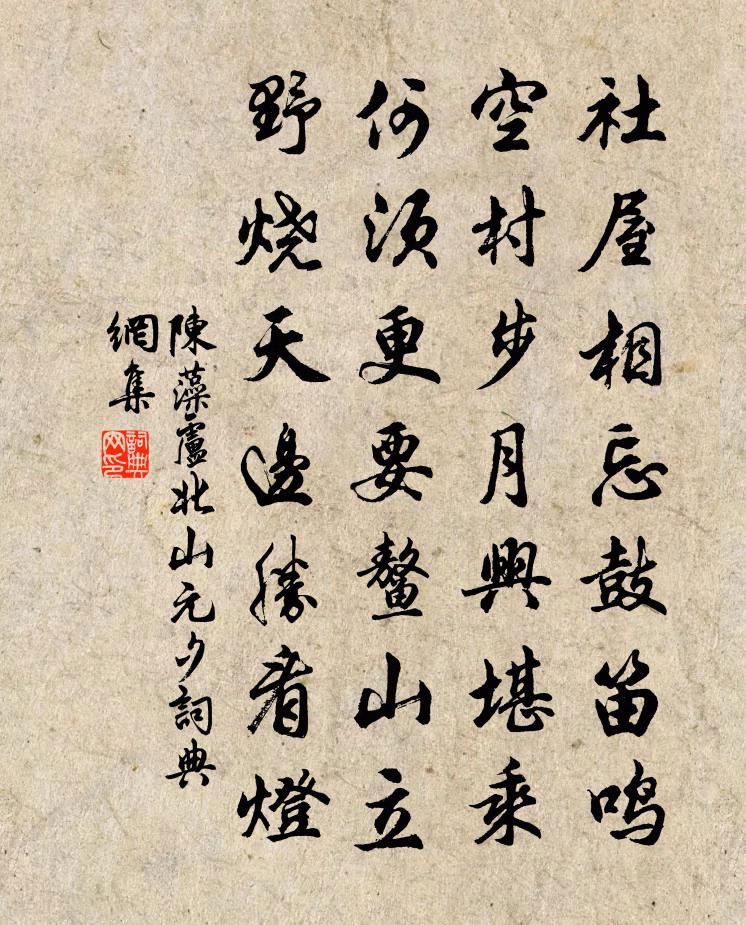 社屋相忘鼓笛鸣
空村步月興堪乘
何須更要鰲山立
野烧天邊勝看燈
陳藻廬北山元夕詞典
網集
詞典網印